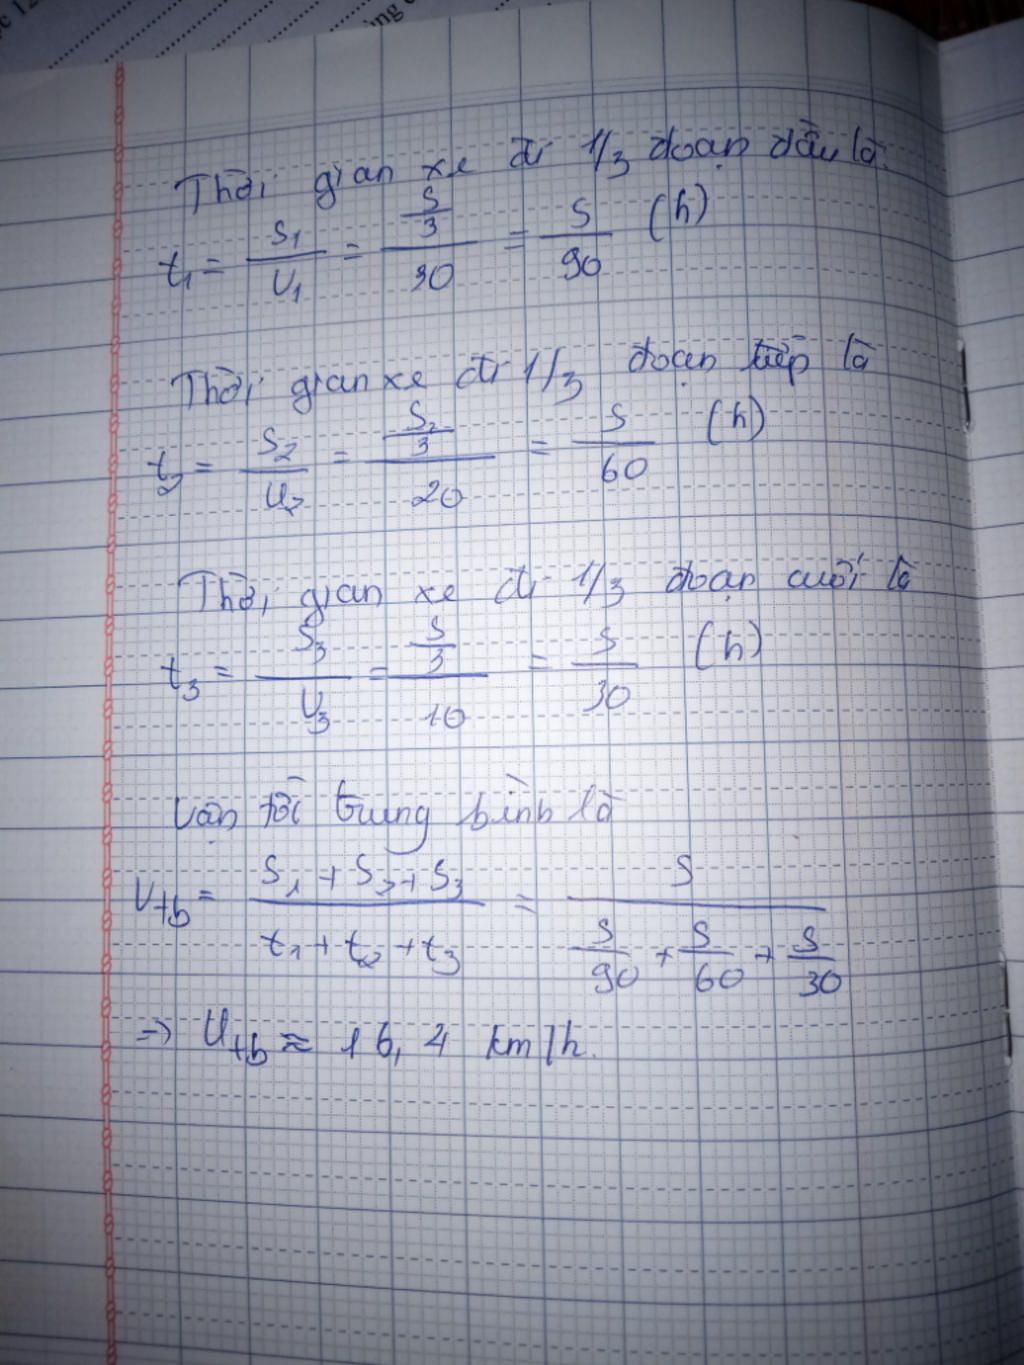 Thời gian xe đi 1/3 đoạn đầu là
t₁ = S₁/V₁ = (S/3)/30 = S/90 (h)
Thời gian xe đi 1/3 đoạn tiếp là
t₂ = S₂/V₂ = (S₂/3)/20 = S/60 (h)
Thời gian xe đi 1/3 đoạn cuối là
t₃ = S₃/V₃ = (S/3)/10 = S/30 (h)
Vận tốc trung bình là
Vtb = (S₁ + S₂ + S₃)/(t₁ + t₂ + t₃) = S/(S/90 + S/60 + S/30)
=> Vtb ≈ 16,4 km/h.